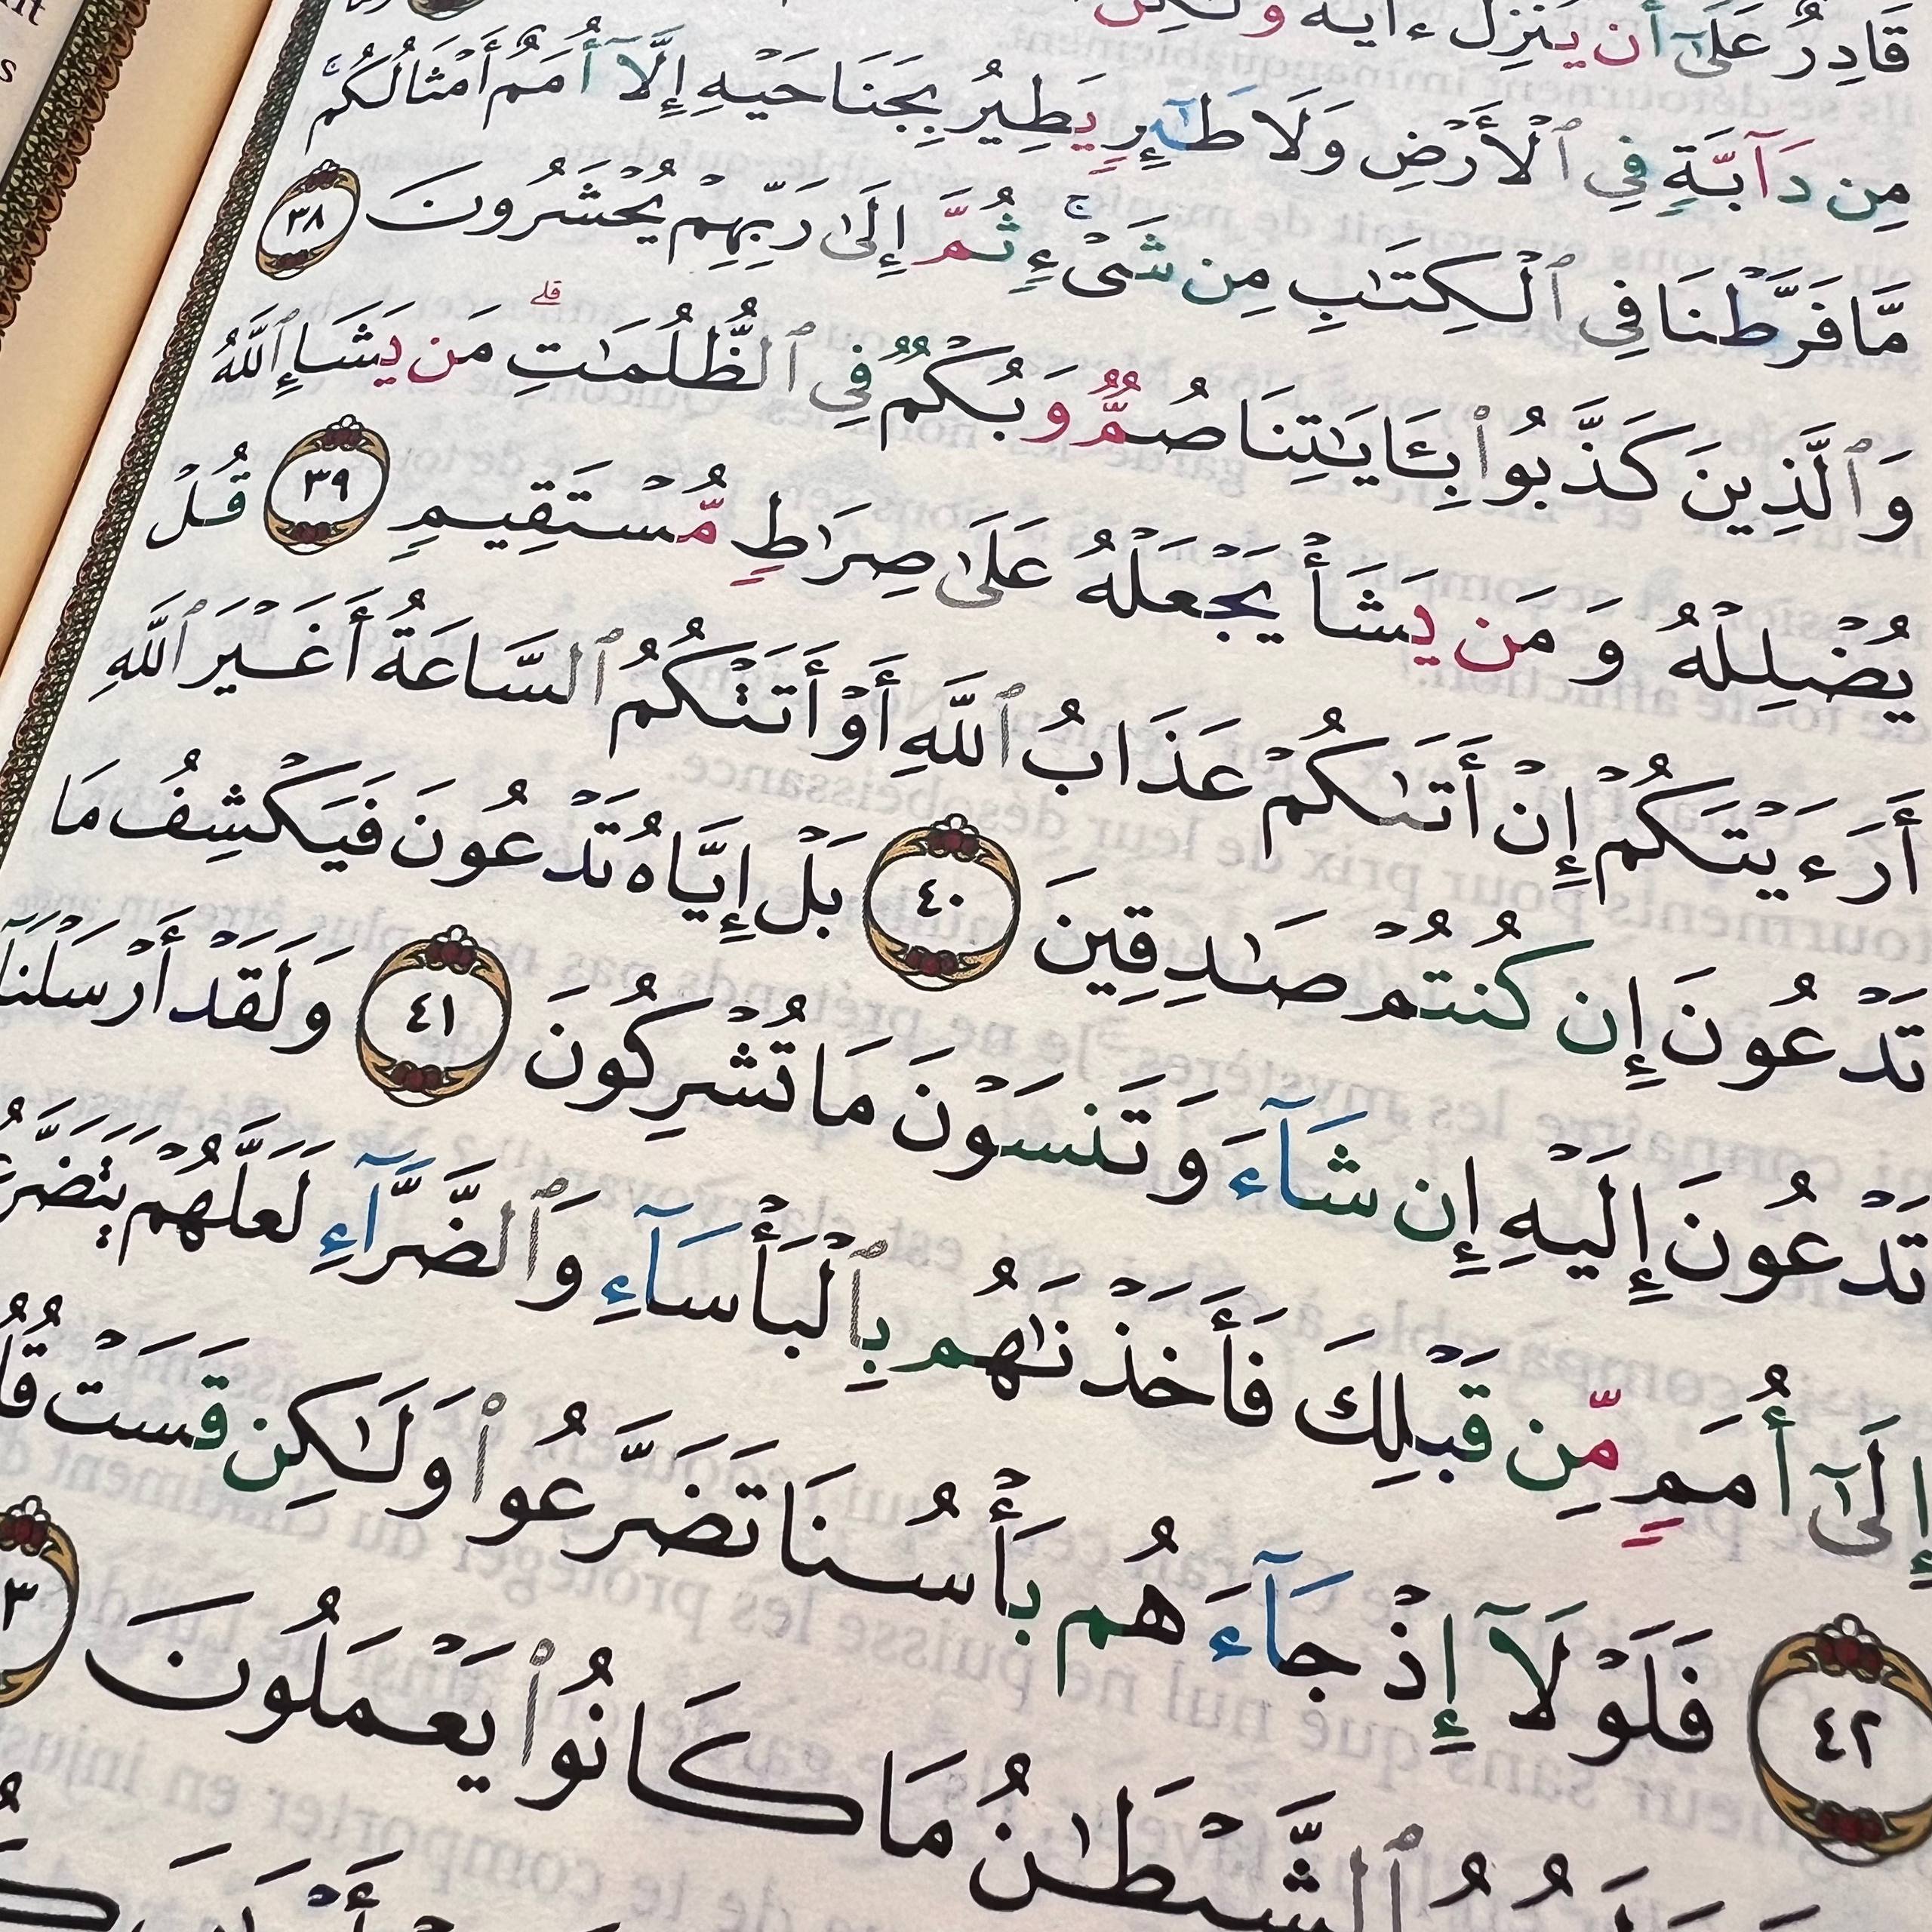 قَادِرٌ عَلَىٰٓ أَن يُنَزِّلَ ءَايَةً وَلَٰكِنَّ
مِن دَآبَّةٍ فِي ٱلْأَرْضِ وَلَا طَٰٓئِرٍ يَطِيرُ بِجَنَاحَيْهِ إِلَّآ أُمَمٌ أَمْثَالُكُم ۚ
مَّا فَرَّطْنَا فِي ٱلْكِتَٰبِ مِن شَيْءٍ ۚ ثُمَّ إِلَىٰ رَبِّهِمْ يُحْشَرُونَ ٣٨
وَٱلَّذِينَ كَذَّبُوا۟ بِـَٔايَٰتِنَا صُمٌّ وَبُكْمٌ فِي ٱلظُّلُمَٰتِ ۗ مَن يَشَإِ ٱللَّهُ
يُضْلِلْهُ وَمَن يَشَأْ يَجْعَلْهُ عَلَىٰ صِرَٰطٍ مُّسْتَقِيمٍ ٣٩ قُلْ
أَرَءَيْتَكُمْ إِنْ أَتَىٰكُمْ عَذَابُ ٱللَّهِ أَوْ أَتَتْكُمُ ٱلسَّاعَةُ أَغَيْرَ ٱللَّهِ
تَدْعُونَ إِن كُنتُمْ صَٰدِقِينَ ٤٠ بَلْ إِيَّاهُ تَدْعُونَ فَيَكْشِفُ مَا
تَدْعُونَ إِلَيْهِ إِن شَآءَ وَتَنسَوْنَ مَا تُشْرِكُونَ ٤١ وَلَقَدْ أَرْسَلْنَآ
إِلَىٰٓ أُمَمٍ مِّن قَبْلِكَ فَأَخَذْنَٰهُم بِٱلْبَأْسَآءِ وَٱلضَّرَّآءِ لَعَلَّهُمْ يَتَضَرَّعُ
٤٢ فَلَوْلَآ إِذْ جَآءَهُم بَأْسُنَا تَضَرَّعُوا۟ وَلَٰكِن قَسَتْ قُلُ
ٱلشَّيْطَٰنُ مَا كَانُوا۟ يَعْمَلُونَ ٣